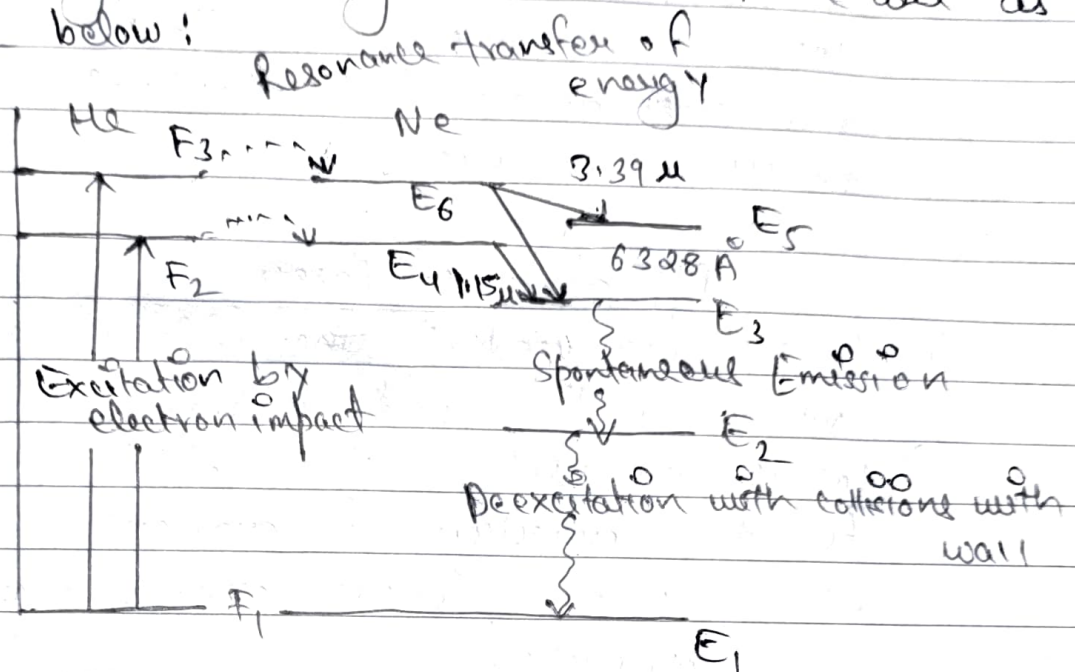 below :
Resonance transfer of
energy
He Ne
F3
3.39 μ
E6
E5
6328 Å
F2
E4 1.15μ
E3
Excitation by
electron impact
Spontaneous Emission
E2
Deexcitation with collisions with
wall
F1
E1